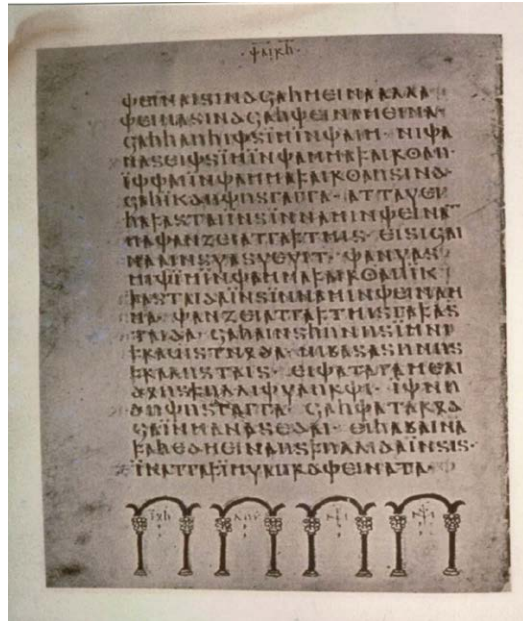 𐌸𐌰𐌹𐍂𐌷
𐌸𐌴𐌹𐌽𐌰𐌹𐍃𐌹𐌽𐌳𐌾𐌰𐌷𐌼𐌴𐌹𐌽𐌰𐌰𐌻𐌻𐌰
𐌸𐌴𐌹𐌽𐌰𐍃𐌹𐌽𐌳𐌾𐌰𐌷𐌸𐌴𐌹𐌽𐌰𐌼𐌴𐌹𐌽𐌰·
𐌾𐌰𐌷𐌷𐌰𐌿𐌷𐌹𐌸𐍃𐌹̈𐌼𐌹̈𐌽𐌸𐌰𐌹𐌼· 𐌽𐌹𐌸𐌰
𐌽𐌰𐍃𐌴𐌹𐌸𐍃𐌹̈𐌼𐌹̈𐌽𐌸𐌰𐌼𐌼𐌰𐍆𐌰𐌹𐍂𐍈𐌰𐌿·
𐌹̈𐌸𐌸𐌰𐌹𐌹̈𐌽𐌸𐌰𐌼𐌼𐌰𐍆𐌰𐌹𐍂𐍈𐌰𐌿𐍃𐌹𐌽𐌳·
𐌾𐌰𐌷𐌹𐌺𐌳𐌿𐌸𐌿𐍃𐌲𐌰𐌲𐌲𐌰· 𐌰𐍄𐍄𐌰𐍅𐌴𐌹
𐌷𐌰𐍆𐌰𐍃𐍄𐌰𐌹𐌹̈𐌽𐍃𐌹̈𐌽𐌽𐌰𐌼𐌹𐌽𐌸𐌴𐌹𐌽𐌰𐌼
𐌼𐌰𐌸𐌰𐌽𐌶𐌴𐌹𐌰𐍄𐌲𐌰𐍆𐍄𐌼𐌹𐍃· 𐌴𐌹𐍃𐌹𐌾𐌰𐌹
𐌽𐌰𐌰𐌹𐌽𐍃𐍅𐌰𐍃𐍅𐌴𐍅𐌹𐍄· 𐌸𐌰𐌽𐍅𐌰𐍃
𐌼𐌹𐌸𐌹̈𐌼𐌹̈𐌽𐌸𐌰𐌼𐌼𐌰𐍆𐌰𐌹𐍂𐍈𐌰𐌿𐌹̈𐌺
𐍆𐌰𐍃𐍄𐌰𐌹𐌳𐌰𐌹̈𐌽𐍃𐌹̈𐌽𐌽𐌰𐌼𐌹𐌽𐌸𐌴𐌹𐌽𐌰𐌼
𐌼𐌰· 𐌸𐌰𐌽𐌶𐌴𐌹𐌰𐍄𐌲𐌰𐍆𐍄𐌼𐌹𐍃𐌲𐌰𐍆𐌰𐍃
𐍄𐌰𐌹𐌳𐌰· 𐌾𐌰𐌷𐌰𐌹𐌽𐍃𐌷𐌿𐌽𐌿𐍃𐌹̈𐌼𐌽𐌹
𐍆𐍂𐌰𐌵𐌹𐍃𐍄𐌽𐍉𐌳𐌰· 𐌽𐌹𐌱𐌰𐍃𐌰𐍃𐌿𐌽𐌿𐍃
𐍆𐍂𐌰𐌻𐌿𐍃𐍄𐌰𐌹𐍃· 𐌴𐌹𐌸𐌰𐍄𐌰𐌲𐌰𐌼𐌴𐌻𐌹
𐌳𐍉𐌿𐍃𐍆𐌿𐌻𐌻𐌹𐌸𐍅𐌰𐌿𐍂𐌸𐌹· 𐌹̈𐌸𐌽𐌿
𐌳𐌿𐌸𐌿𐍃𐌲𐌰𐌲𐌲𐌰· 𐌾𐌰𐌷𐌸𐌰𐍄𐌰𐍂𐍉𐌳
𐌾𐌰𐌹̈𐌽𐌼𐌰𐌽𐌰𐍃𐌴𐌳𐌰𐌹· 𐌴𐌹𐌷𐌰𐌱𐌰𐌹𐌽𐌰
𐍆𐌰𐌷𐌴𐌳𐌼𐌴𐌹𐌽𐌰𐌿𐍃𐍆𐌿𐌻𐌻𐌹𐌳𐌰𐌹̈𐌽𐍃𐌹𐍃·
𐌹̈𐌺𐌰𐍄𐌲𐌰𐍆𐌹̈𐌼𐍅𐌰𐌿𐍂𐌳𐌸𐌴𐌹𐌽𐌰𐍄𐌰·